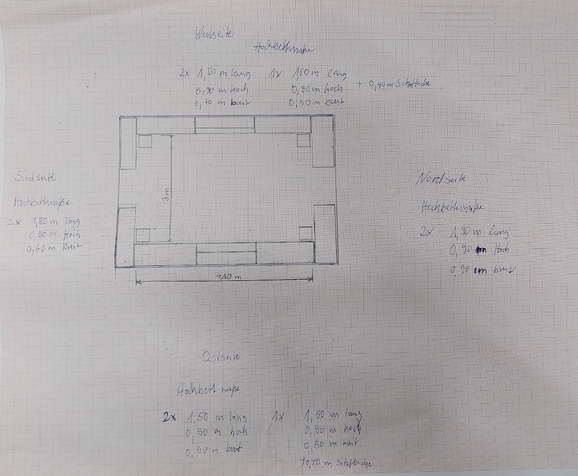 Westseite
Hochbeetmaße
2x 1,50 m lang 1x 1,80 m lang
0,90 m hoch 0,90 m hoch + 0,40 m Sitzfläche
breit 0,50 m breit
3 m
4,80 m
Südseite
Hochbeetmaße
2x 1,80 m lang
0,90 m hoch
0,60 m breit
Nordseite
Hochbeetmaße
2x 1,90 m lang
0,90 m hoch
0,90 m breit
Ostseite
Hochbeetmaße
2x 1,50 m lang 1x 1,50 m lang
0,90 m hoch 0,90 m hoch
0,90 m breit 0,50 m breit
m Sitzfläche